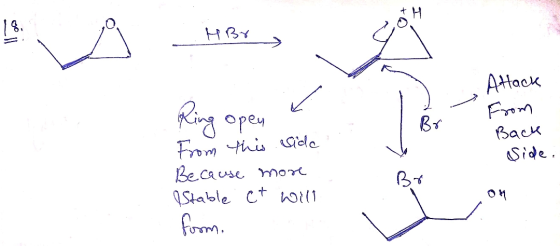 18.
O
HBr
+
O H
Ring open
From this side
Because more
Stable C+ will
form.
Br
Attack
From
Back
Side.
Br
OH